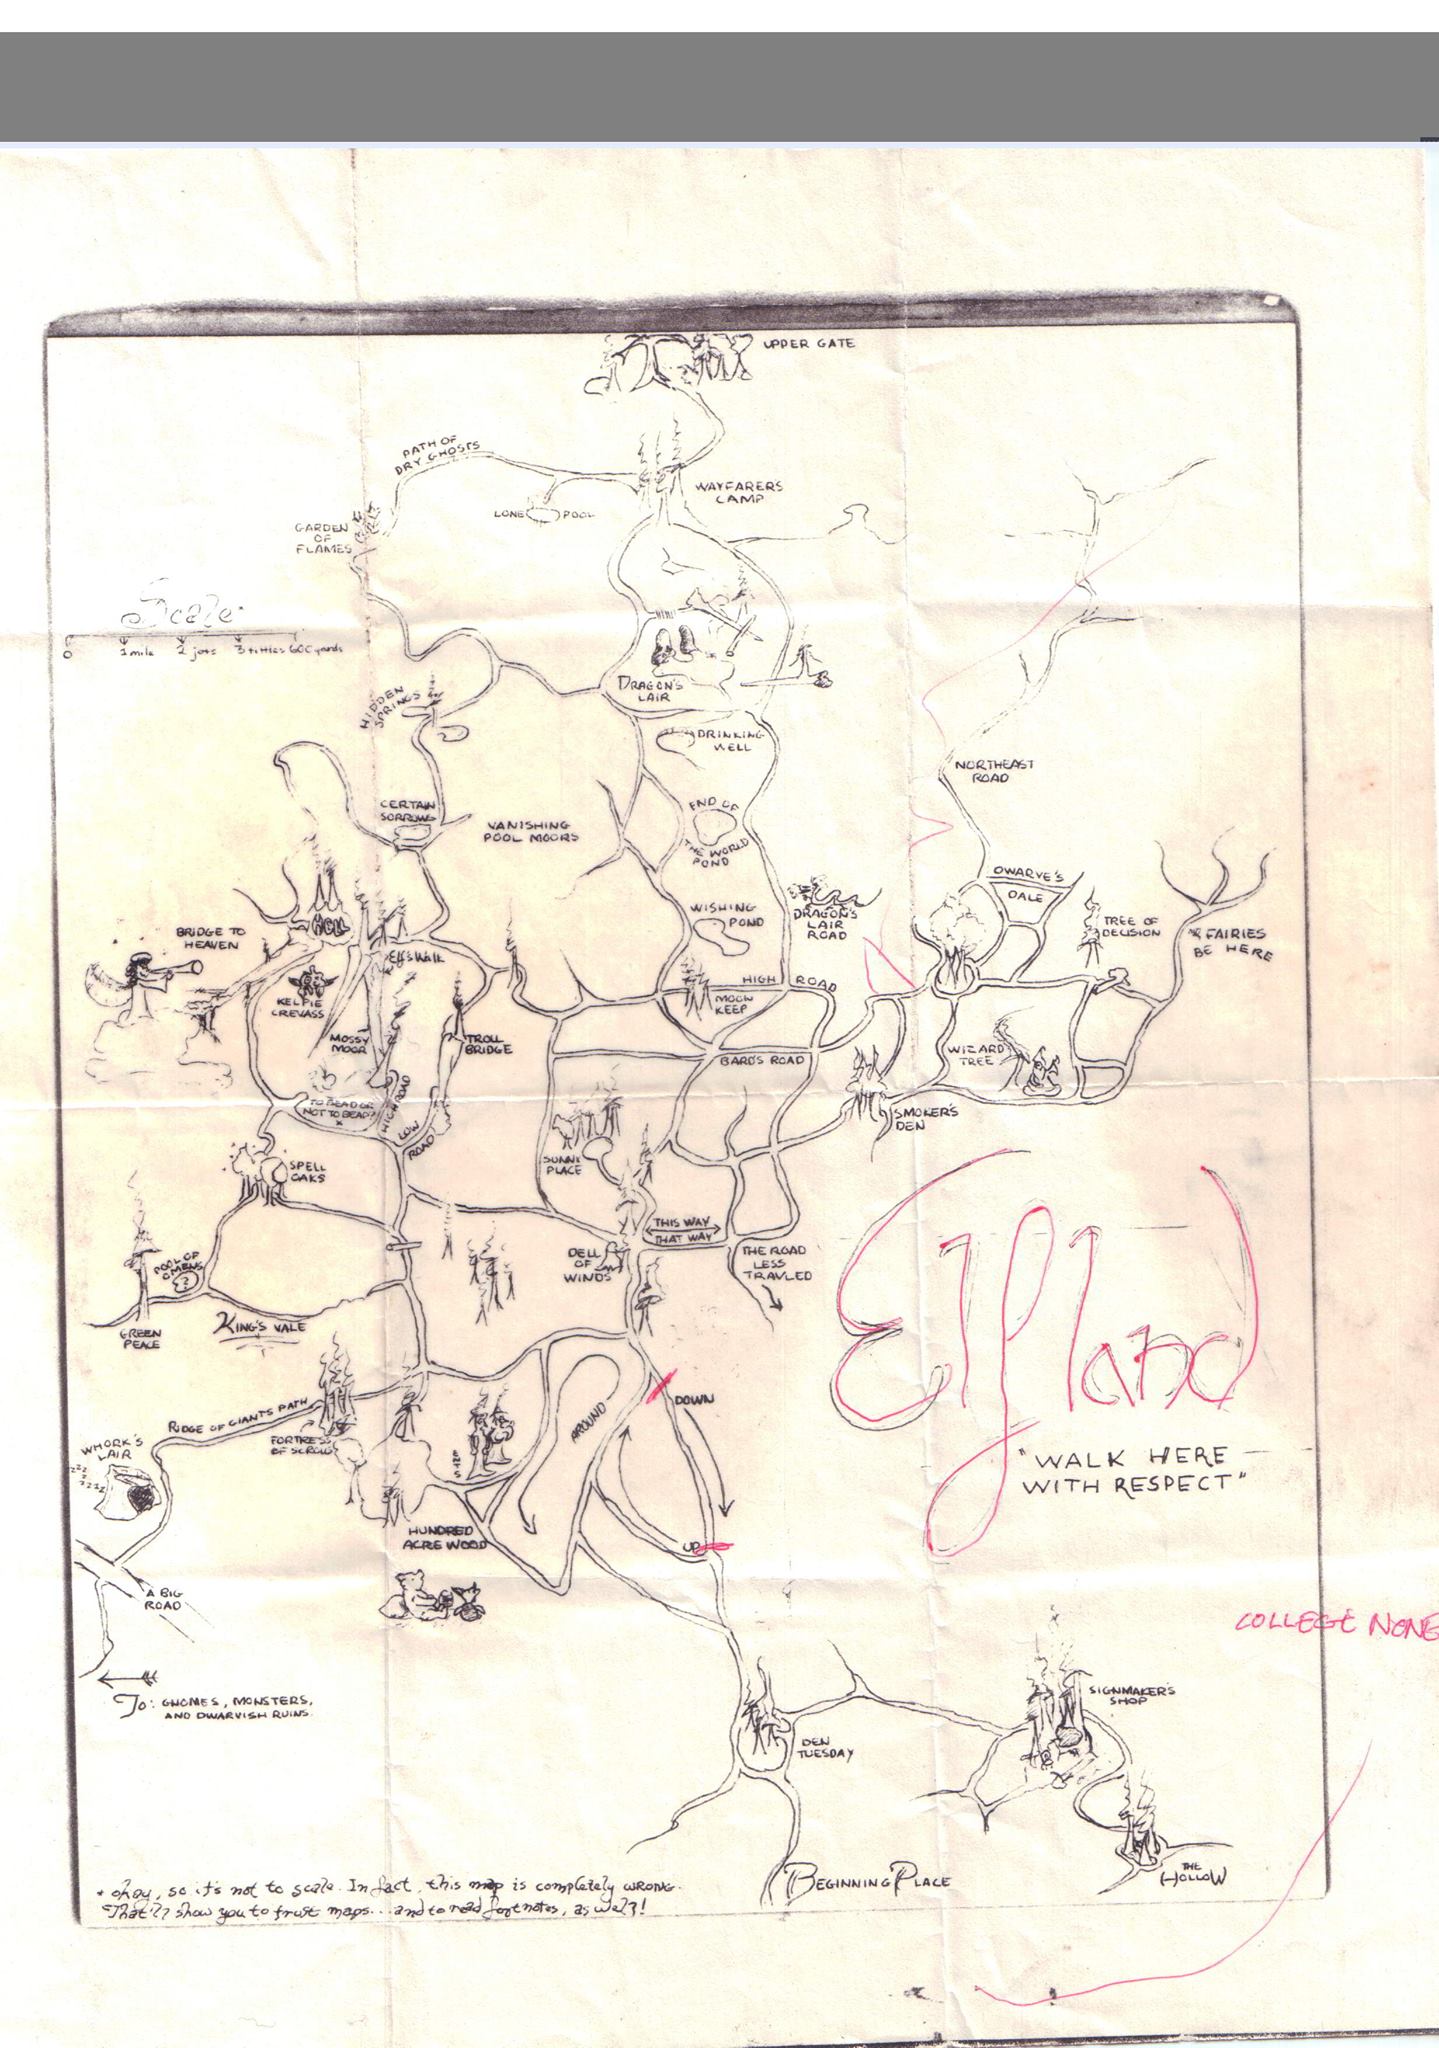 UPPER GATE
PATH OF
DRY GHOSTS
WAYFARERS
CAMP
LONE POOL
GARDEN
OF
FLAMES
Scale*
0 1 mile 2 jots 3 tittles 600 yards
DRAGON'S
LAIR
HIDDEN
SPRINGS
DRINKING
WELL
NORTHEAST
ROAD
CERTAIN
SORROWS
VANISHING
POOL MOORS
END OF
THE WORLD
POND
DWARVE'S
DALE
DRAGON'S
LAIR
ROAD
WISHING
POND
TREE OF
DECISION
FAIRIES
BE HERE
HELL
BRIDGE TO
HEAVEN
Elf's Walk
KELFIE
CREVASS
HIGH ROAD
MOON
KEEP
MOSSY
MOOR
TROLL
BRIDGE
BARD'S ROAD
WIZARD
TREE
TO BEAD OR
NOT TO BEAD?
x
HIGH ROAD
LOW
ROAD
SMOKER'S
DEN
SPELL
OAKS
SUNNY
PLACE
THIS WAY
THAT WAY
DELL
OF
WINDS
THE ROAD
LESS
TRAVLED
POOL OF
OMENS
?
GREEN
PEACE
KING'S VALE
Elfland
"WALK HERE
WITH RESPECT"
DOWN
AROUND
UP
RIDGE OF GIANTS PATH
FORTRESS
OF SCROLLS
WHORK'S
LAIR
ZZZ
ZZZZ
HUNDRED
ACRE WOOD
A BIG
ROAD
COLLEGE NONE
To: GNOMES, MONSTERS,
AND DWARVISH RUINS.
SIGNMAKER'S
SHOP
DEN
TUESDAY
BEGINNING PLACE
THE
HOLLOW
* okay, so it's not to scale. In fact, this map is completely WRONG.
That'll show you to trust maps... and to read footnotes, as well!